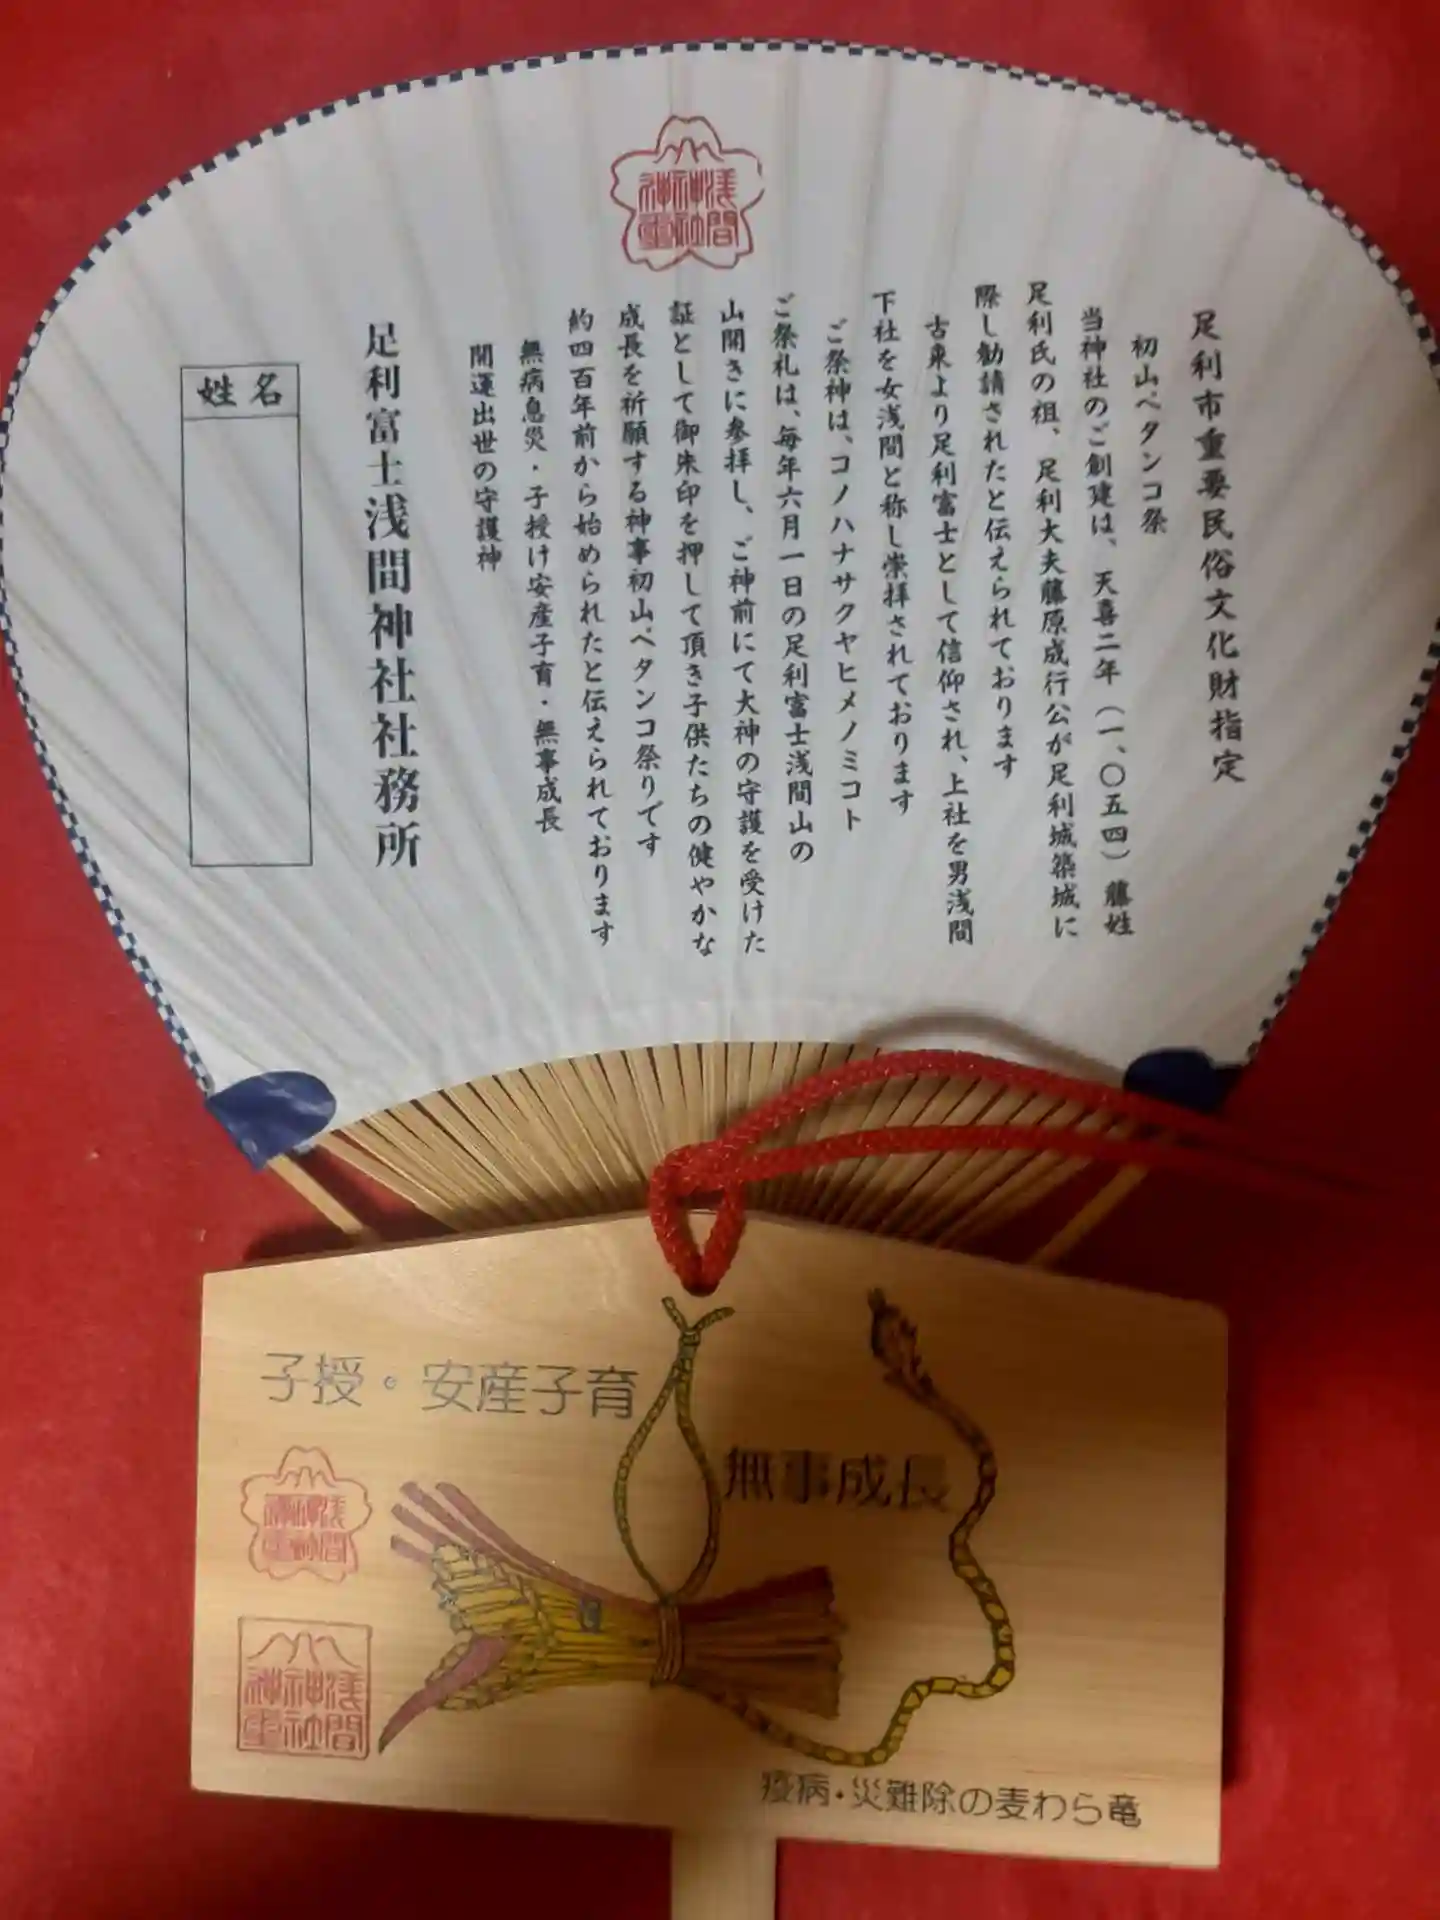 足利市重要民俗文化財指定
初山ペタンコ祭
当神社のご創建は、天喜二年(一、〇五四)藤姓
足利氏の祖、足利大夫藤原成行公が足利城築城に
際し勧請されたと伝えられております
古来より足利富士として信仰され、上社を男浅間
下社を女浅間と称し崇拝されております
ご祭神は、コノハナサクヤヒメノミコト
ご祭礼は、毎年六月一日の足利富士浅間山の
山開きに参拝し、ご神前にて大神の守護を受けた
証として御朱印を押して頂き子供たちの健やかな
成長を祈願する神事初山ペタンコ祭りです
約四百年前から始められたと伝えられております
無病息災・子授け安産子育・無事成長
開運出世の守護神
足利富士浅間神社社務所
姓名
浅間
神社
神璽
子授・安産子育
無事成長
浅間
神社
神璽
浅間
神社
神璽
疫病・災難除の麦わら竜